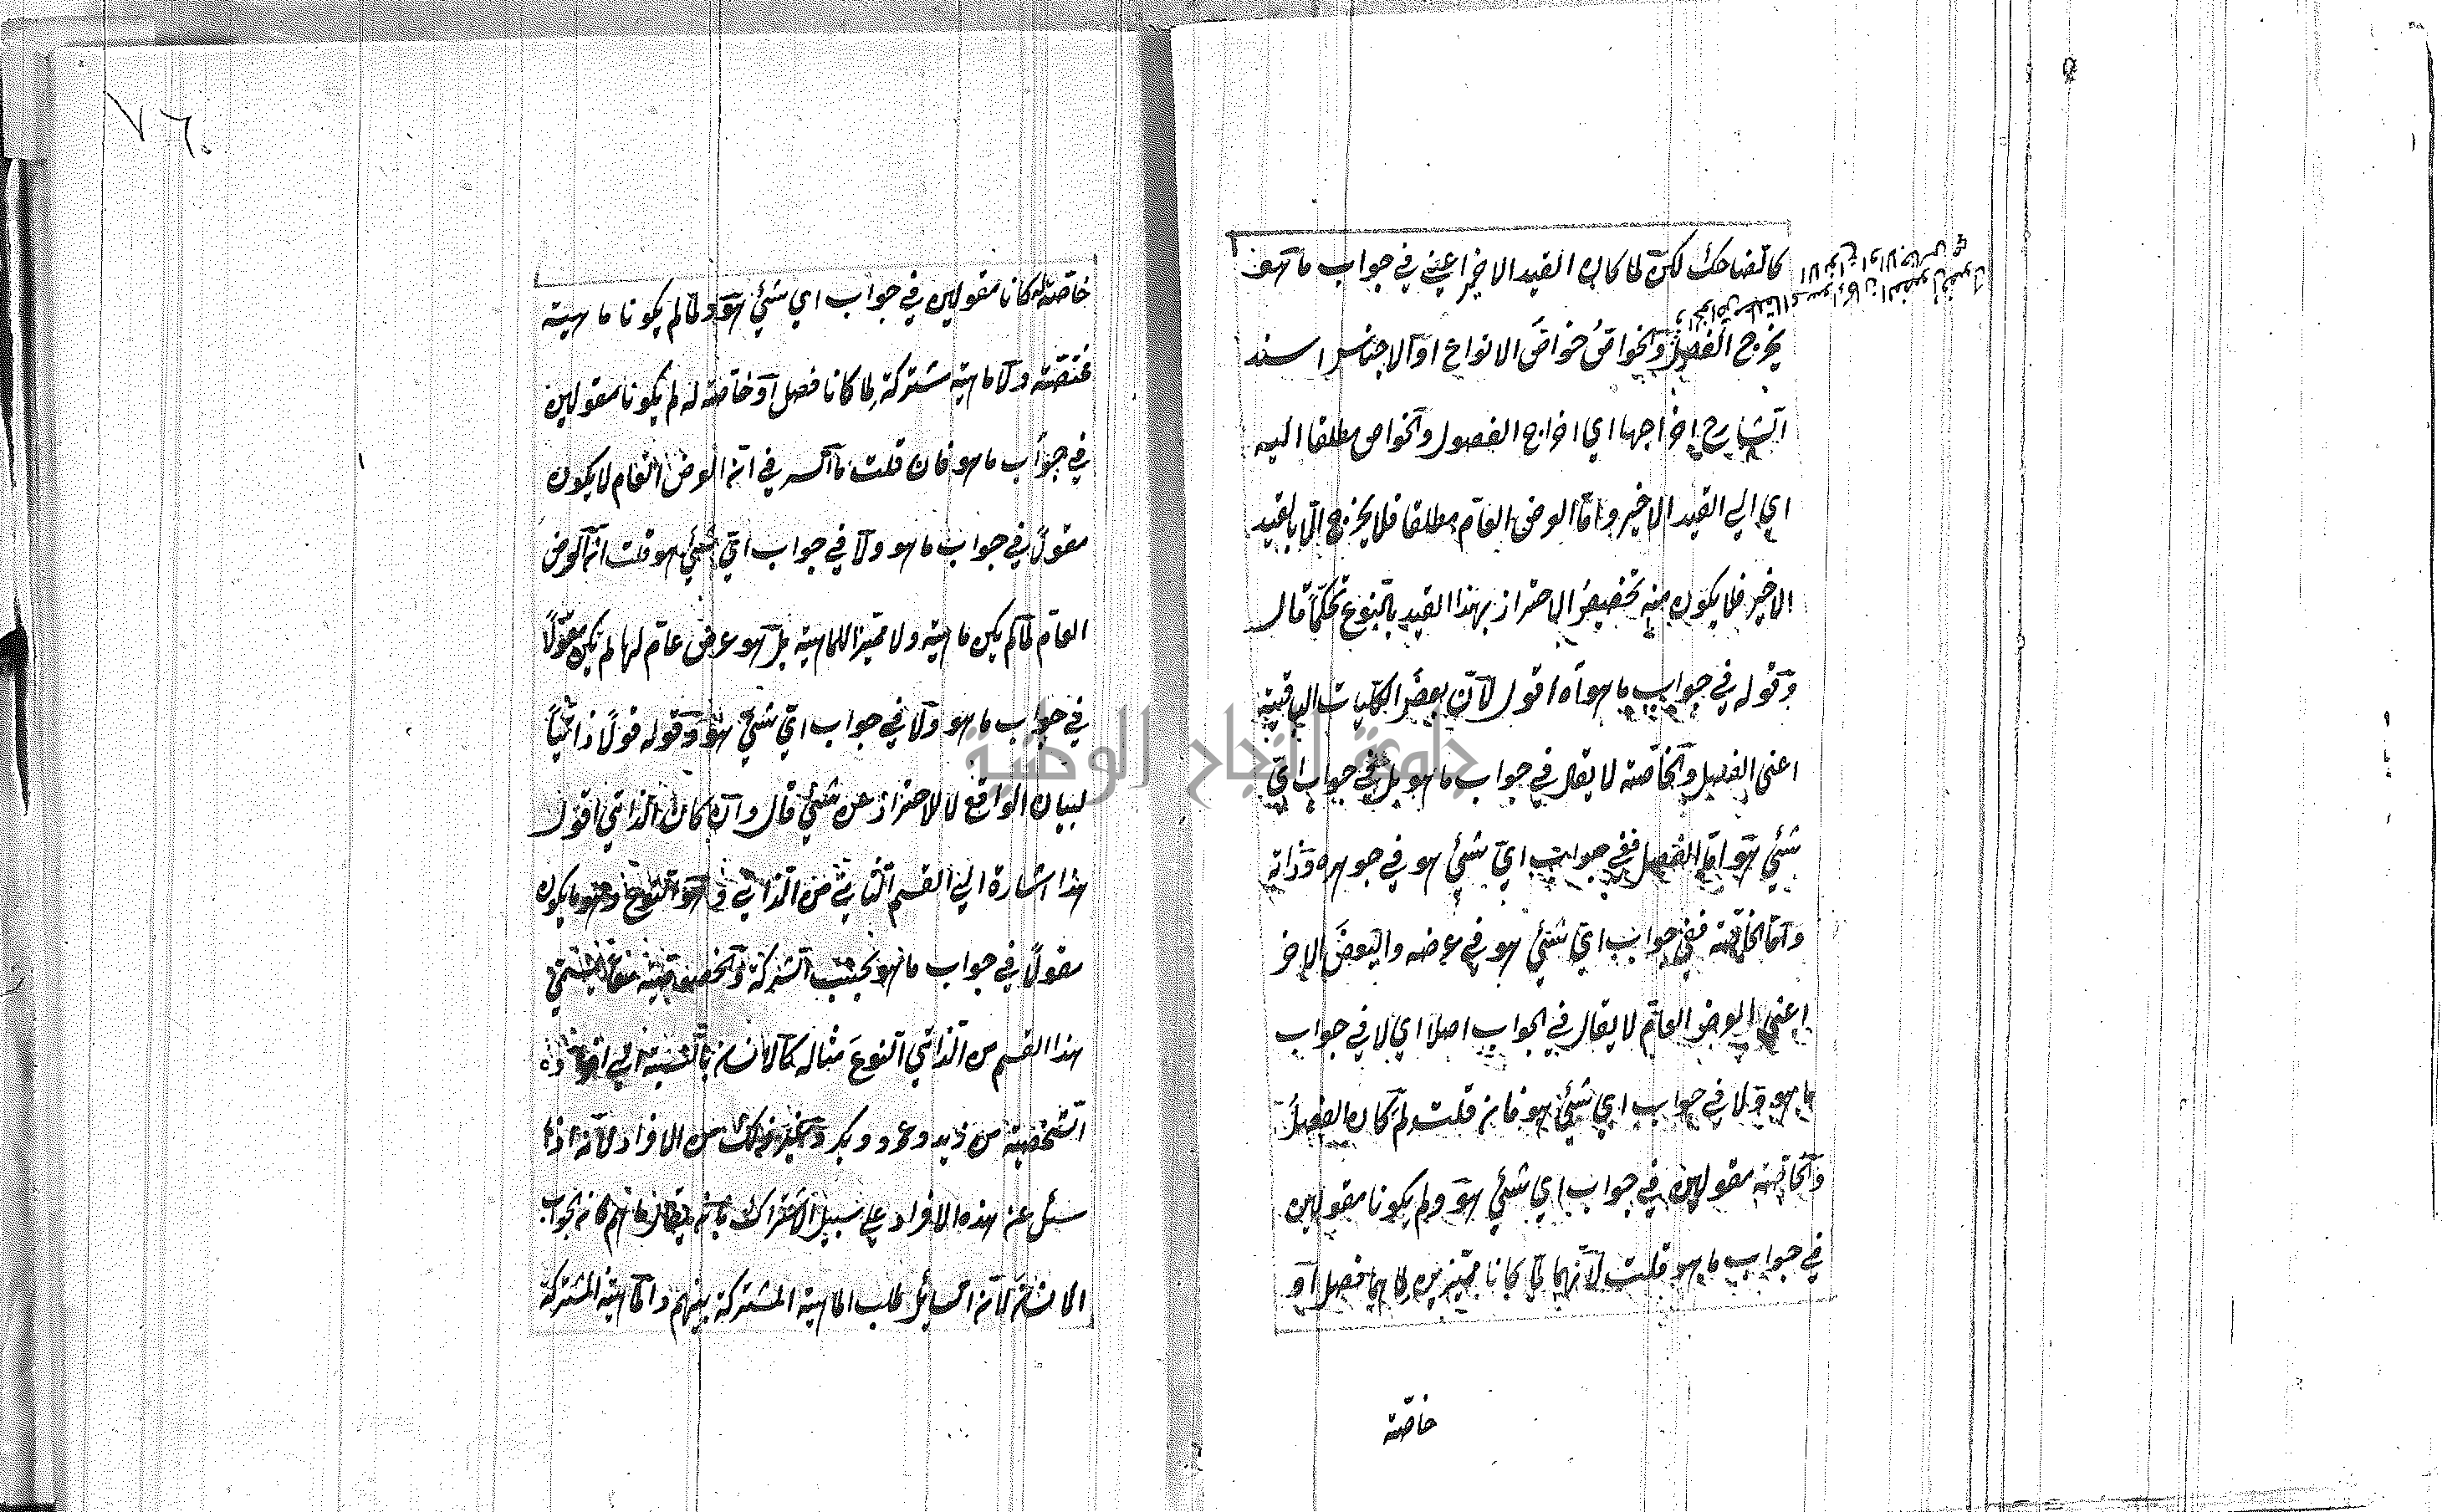 كالضاحك لكن لما كان القيد الاخير اعني في جواب ما هو
يخرج الفصل والخواص خواص الانواع او الاجناس اسند
الشارح اخراجها اي اخراج الفصول والخواص مطلقا اليه
اي الي القيد الاخير واما العرض العام مطلقا فلا يخرج الا بالقيد
الاخير فلا يكون منه تخصيص الاحتراز بهذا القيد بالنوع تحكما قال
وقوله في جواب ما هو اه اقول لان بعض الكليات الباقية
اعني الفصل والخاصة لا يقال في جواب ما هو بل في جواب اي
شئ هو اما الفصل ففي جواب اي شئ هو في جوهره وذاته
واما الخاصة ففي جواب اي شئ هو في عرضه والبعض الاخر
اعني العرض العام لا يقال في الجواب اصلا اي لا في جواب
ما هو ولا في جواب اي شئ هو فان قلت لم كان الفصل
والخاصة مقولين في جواب اي شئ هو ولم يكونا مقولين
في جواب ما هو قلت لانهما لما كانا مميزين لما هما فصل او
خاصة
٧٦
خاصة له كانا مقولين في جواب اي شئ هو ولما لم يكونا ماهية
مختصة ولا ماهية مشتركة لما كانا فصلا او خاصة له لم يكونا مقولين
في جواب ما هو فان قلت ما السر في ان العرض العام لا يكون
مقولا في جواب ما هو ولا في جواب اي شئ هو قلت ان العرض
العام لما لم يكن ماهية ولا مميزا للماهية بل هو عرض عام لها لم يكن مقولا
في جواب ما هو ولا في جواب اي شئ هو وقوله قولا ذاتيا
لبيان الواقع لا للاحتراز عن شئ قال وان كان الذاتي اقول
هذا اشارة الي القسم الثاني من الذاتي وهو النوع وهو ما يكون
مقولا في جواب ما هو بحسب الشركة والخصوصية معا فيسمي
هذا القسم من الذاتي النوع مثاله كالانسان بالنسبة الي افراده
الشخصية من زيد وعمرو وبكر وغير ذلك من الافراد لانه اذا
سئل عن هذه الافراد علي سبيل الاشتراك بانه يقال ما هم كان الجواب
الانسان لان السائل طلب الماهية المشتركة بينهم والماهية المشتركة